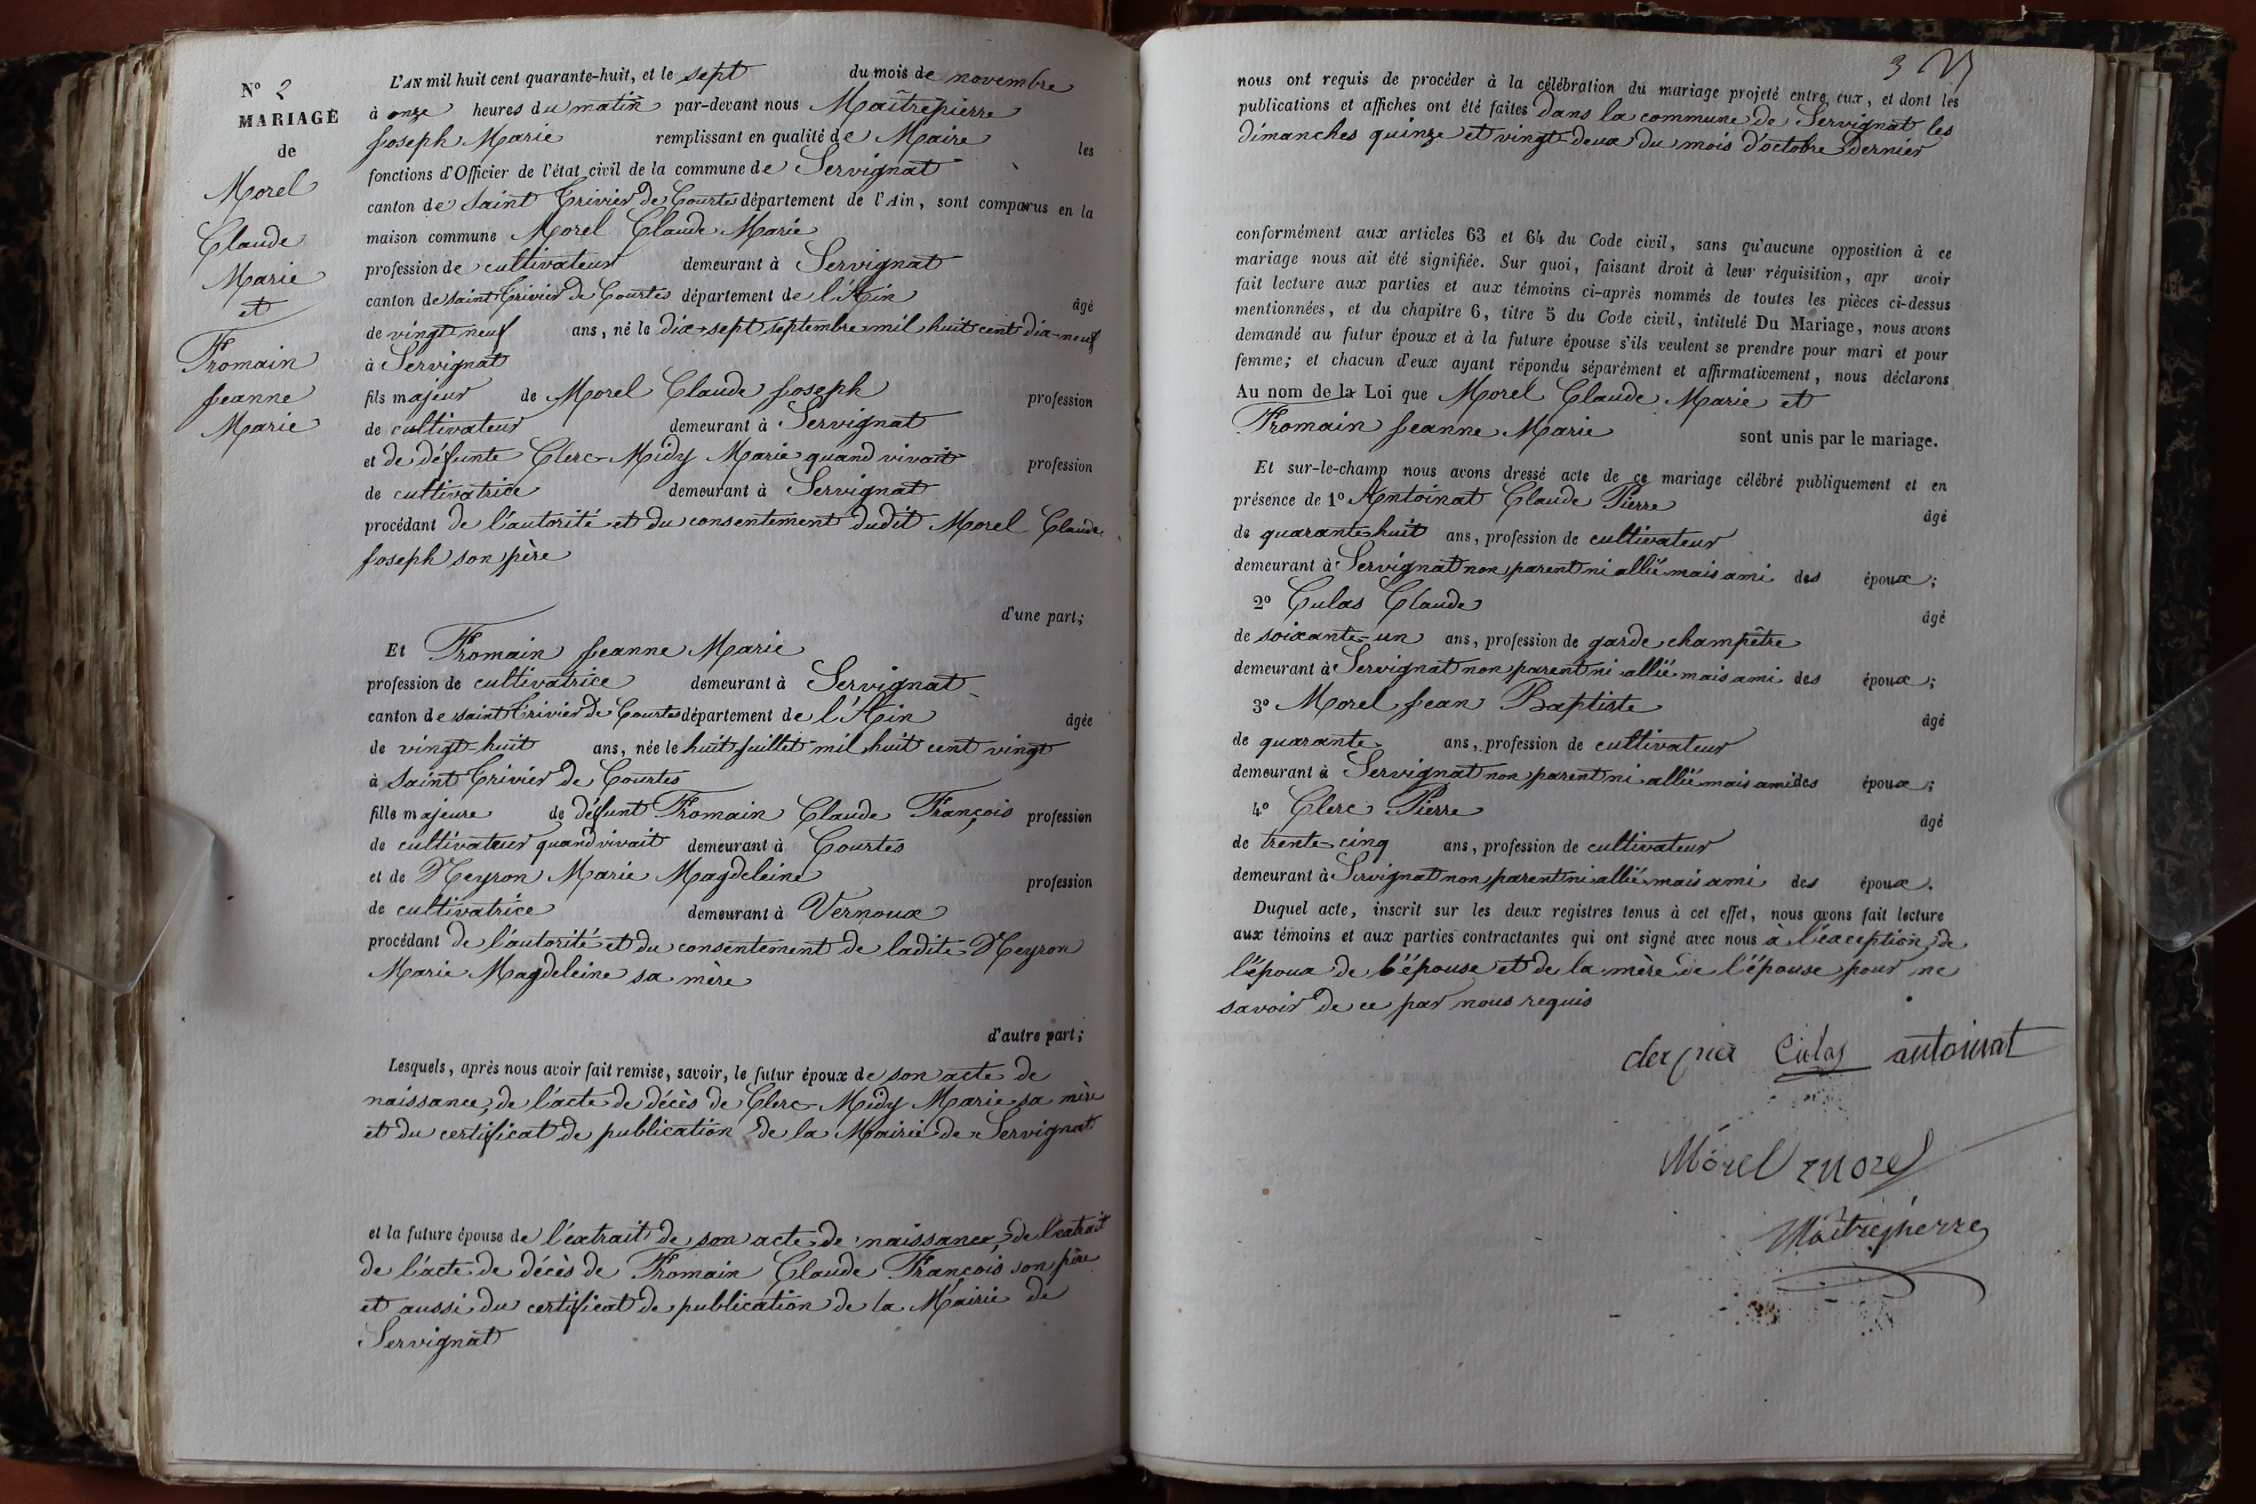 N° 2
MARIAGE
de
Morel
Claude
Marie
et
Fromain
Jeanne
Marie
L'AN mil huit cent quarante-huit, et le sept du mois de novembre
à onze heures du matin par-devant nous Maîtrepierre
Joseph Marie remplissant en qualité de Maire les
fonctions d'Officier de l'état civil de la commune de Servignat
canton de Saint Trivier de Courtes département de l'Ain, sont comparus en la
maison commune Morel Claude Marie
profession de cultivateur demeurant à Servignat
canton de saint Trivier de Courtes département de l'Ain âgé
de vingt neuf ans, né le dix-sept septembre mil huit cent dix-neuf
à Servignat
fils majeur de Morel Claude Joseph profession
de cultivateur demeurant à Servignat
et de défunte Clerc-Midy Marie quand vivait profession
de cultivatrice demeurant à Servignat
procédant de l'autorité et du consentement dudit Morel Claude
Joseph son père
d'une part;
Et Fromain Jeanne Marie
profession de cultivatrice demeurant à Servignat
canton de saint Trivier de Courtes département de l'Ain âgée
de vingt-huit ans, née le huit juillet mil huit cent vingt
à Saint Trivier de Courtes
fille majeure de défunt Fromain Claude François profession
de cultivateur quand vivait demeurant à Courtes
et de Neyron Marie Magdeleine profession
de cultivatrice demeurant à Vernoux
procédant de l'autorité et du consentement de ladite Neyron
Marie Magdeleine sa mère
d'autre part;
Lesquels, après nous avoir fait remise, savoir, le futur époux de son acte de
naissance, de l'acte de décès de Clerc-Midy Marie sa mère
et du certificat de publication de la Mairie de Servignat
et la future épouse de l'extrait de son acte de naissance, de l'extrait
de l'acte de décès de Fromain Claude François son père
et aussi du certificat de publication de la Mairie de
Servignat
3
nous ont requis de procéder à la célébration du mariage projeté entre eux, et dont les
publications et affiches ont été faites dans la commune de Servignat les
dimanches quinze et vingt-deux du mois d'octobre dernier
conformément aux articles 63 et 64 du Code civil, sans qu'aucune opposition à ce
mariage nous ait été signifiée. Sur quoi, faisant droit à leur réquisition, apr avoir
fait lecture aux parties et aux témoins ci-après nommés de toutes les pièces ci-dessus
mentionnées, et du chapitre 6, titre 5 du Code civil, intitulé Du Mariage, nous avons
demandé au futur époux et à la future épouse s'ils veulent se prendre pour mari et pour
femme; et chacun d'eux ayant répondu séparément et affirmativement, nous déclarons
Au nom de la Loi que Morel Claude Marie et
Fromain Jeanne Marie sont unis par le mariage.
Et sur-le-champ nous avons dressé acte de ce mariage célébré publiquement et en
présence de 1° Antoinat Claude Pierre âgé
de quarante huit ans, profession de cultivateur
demeurant à Servignat non parent ni allié mais ami des époux;
2° Culas Claude âgé
de soixante-un ans, profession de garde champêtre
demeurant à Servignat non parent ni allié mais ami des époux;
3° Morel Jean Baptiste âgé
de quarante ans, profession de cultivateur
demeurant à Servignat non parent ni allié mais ami des époux;
4° Clerc Pierre âgé
de trente cinq ans, profession de cultivateur
demeurant à Servignat non parent ni allié mais ami des époux.
Duquel acte, inscrit sur les deux registres tenus à cet effet, nous avons fait lecture
aux témoins et aux parties contractantes qui ont signé avec nous à l'exception de
l'époux de l'épouse et de la mère de l'épouse pour ne
savoir de ce par nous requis
Culas antoinat
Morel morel
Maitrepierre